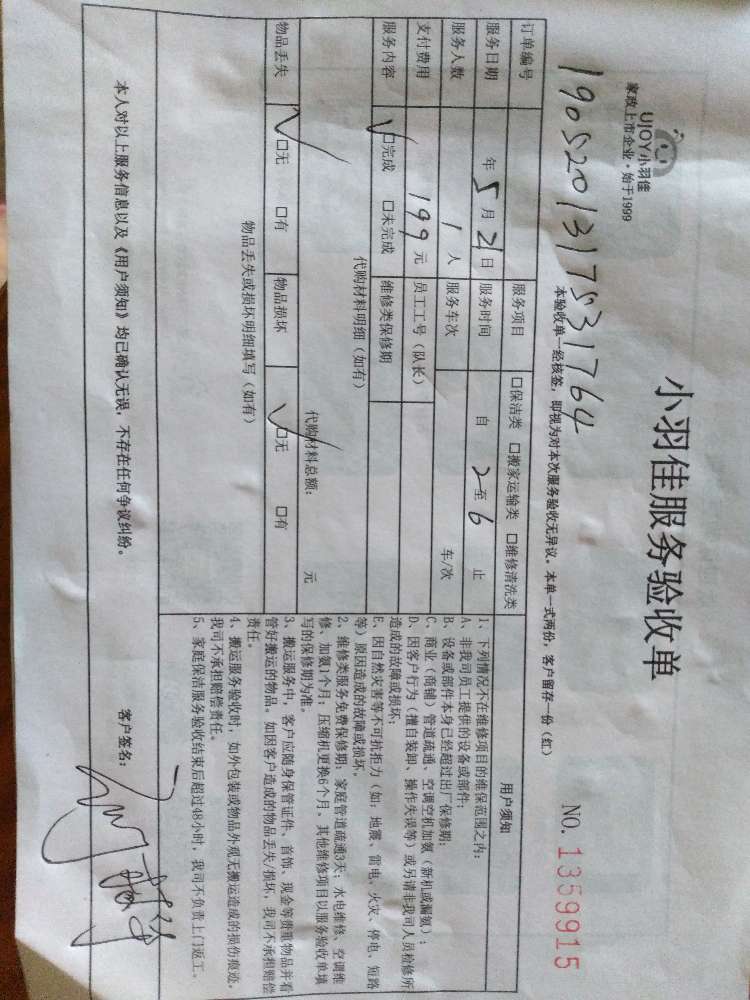 UJOY小羽佳
家政上市企业·始于1999
小羽佳服务验收单
NO. 1359915
本验收单一经核签，即视为对本次服务验收无异议。本单一式两份，客户留存一份（红）
订单编号 1905201317531764 服务项目 口保洁类 口搬家运输类 口维修清洗类
服务日期 年 5 月 21 日 服务时间 自 2 至 6 止
服务人数 1 人 服务车次 车/次
支付费用 199 元 员工工号（队长）
服务内容 ✓口完成 口未完成 维修类保修期
代购材料明细（如有）
代购材料总额： 元
物品丢失 ✓口无 口有 物品损坏 ✓口无 口有
物品丢失或损坏明细填写（如有）
用户须知
1、下列情况不在维修项目的维保范围之内：
A、非我司员工提供的设备或部件；
B、设备或部件本身已经超过出厂保修期；
C、商业（商铺）管道疏通、空调空机加氨（新机或漏氨）；
D、因客户行为（擅自装卸、操作失误等）或另请非我司人员检修所
造成的故障或损坏；
E、因自然灾害等不可抗拒力（如：地震、雷电、火灾、停电、短路
等）原因造成的故障或损坏。
2、维修类服务免费保修期：家庭管道疏通3天；水电维修、空调维
修、加氨1个月；压缩机更换6个月。其他维修项目以服务验收单填
写的保修期为准。
3、搬运服务中，客户应随身保管证件、首饰、现金等贵重物品并看
管好搬运的物品。如因客户造成的物品丢失/损坏，我司不承担赔偿
责任。
4、搬运服务验收时，如外包装或物品外观无搬运造成的损伤痕迹，
我司不承担赔偿责任。
5、家庭保洁服务验收结束后超过48小时，我司不负责上门返工。
本人对以上服务信息以及《用户须知》均已确认无误，不存在任何争议纠纷。
客户签名：